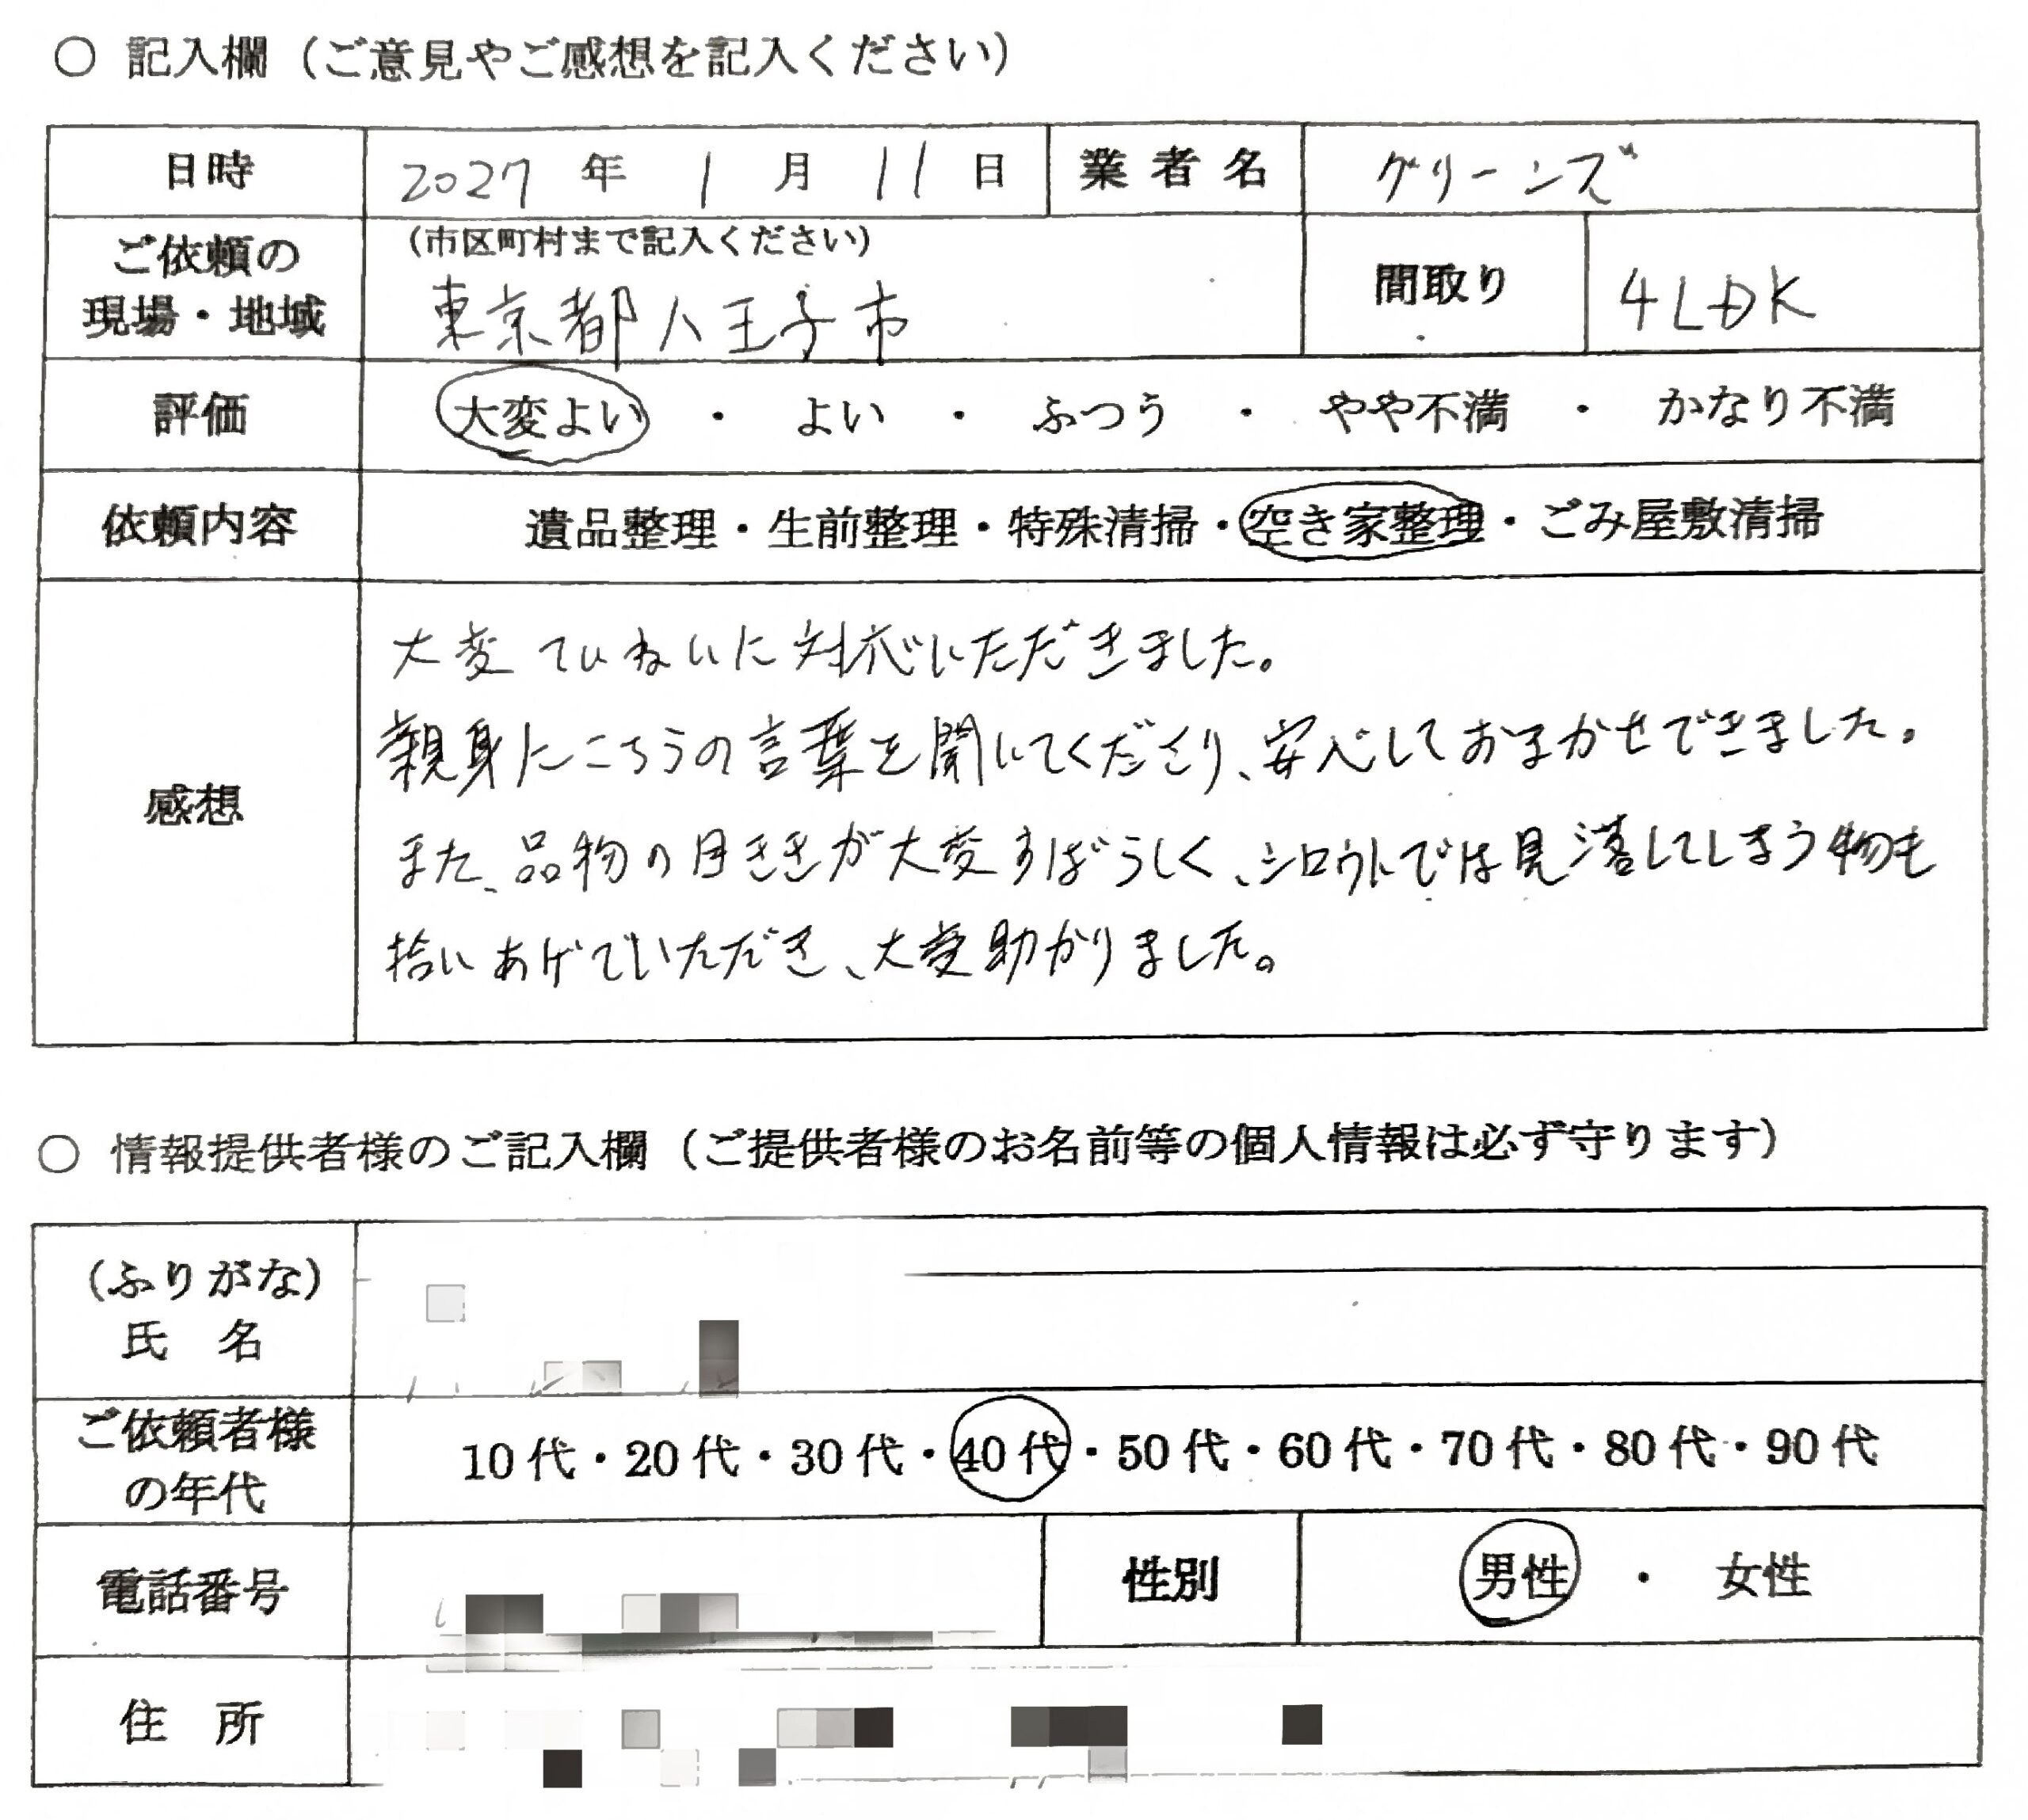 ○ 記入欄（ご意見やご感想を記入ください）
日時 2027 年 1 月 11 日 業者名 グリーンズ
ご依頼の
現場・地域
（市区町村まで記入ください）
東京都八王子市
間取り 4LDK
評価 大変よい ・ よい ・ ふつう ・ やや不満 ・ かなり不満
依頼内容 遺品整理・生前整理・特殊清掃・空き家整理・ごみ屋敷清掃
感想
大変ていねいに対応いただきました。
親身にこちらの言葉を聞いてくださり、安心しておまかせできました。
また、品物の目ききが大変すばらしく、シロウトでは見落してしまう物も
拾いあげていただき、大変助かりました。
○ 情報提供者様のご記入欄（ご提供者様のお名前等の個人情報は必ず守ります）
（ふりがな）
氏 名
ご依頼者様
の年代
10代・20代・30代・40代・50代・60代・70代・80代・90代
電話番号 性別 男性 ・ 女性
住 所